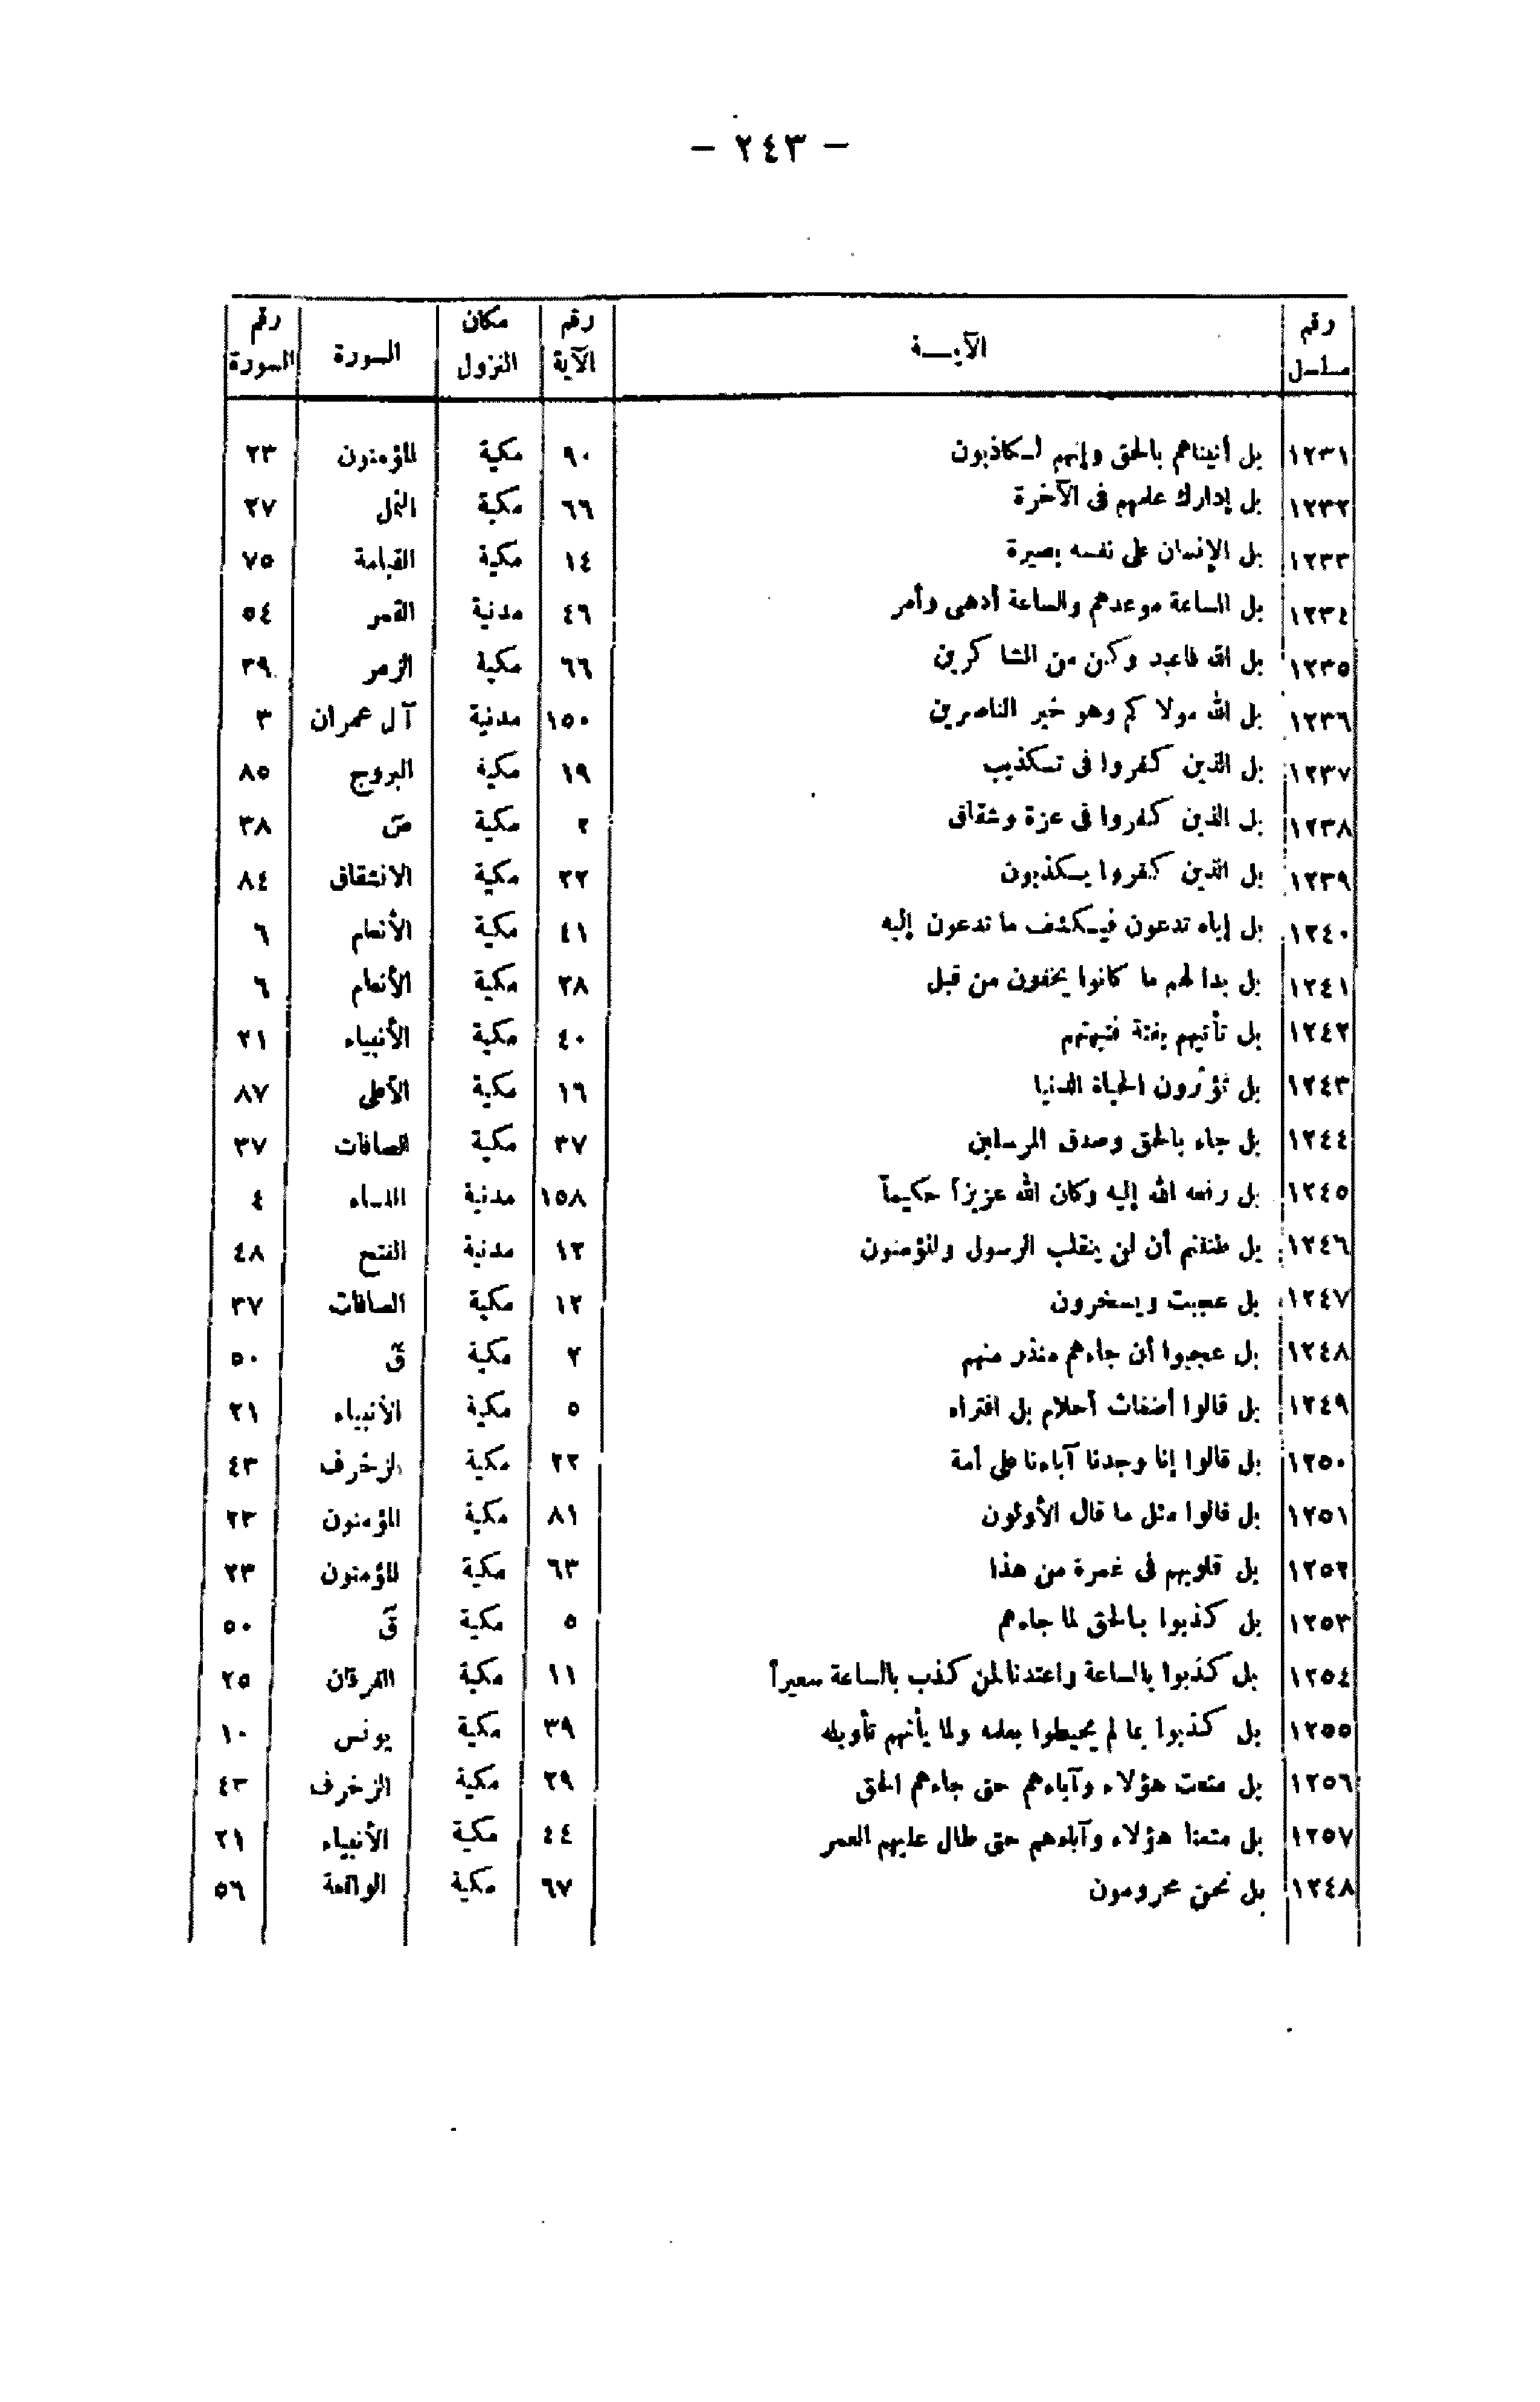 — ٢٤٣ —
رقم مسلسل | الآيـــة | رقم الآية | مكان النزول | السورة | رقم السورة
١٢٣١ | بل أتيناهم بالحق وإنهم لكاذبون | ٩٠ | مكية | المؤمنون | ٢٣
١٢٣٢ | بل إدارك علمهم فى الآخرة | ٦٦ | مكية | النمل | ٢٧
١٢٣٣ | بل الإنسان على نفسه بصيرة | ١٤ | مكية | القيامة | ٧٥
١٢٣٤ | بل الساعة موعدهم والساعة أدهى وأمر | ٤٦ | مدنية | القمر | ٥٤
١٢٣٥ | بل الله فاعبد وكن من الشاكرين | ٦٦ | مكية | الزمر | ٣٩
١٢٣٦ | بل الله مولاكم وهو خير الناصرين | ١٥٠ | مدنية | آل عمران | ٣
١٢٣٧ | بل الذين كفروا فى تكذيب | ١٩ | مكية | البروج | ٨٥
١٢٣٨ | بل الذين كفروا فى عزة وشقاق | ٢ | مكية | صۤ | ٣٨
١٢٣٩ | بل الذين كفروا يكذبون | ٢٢ | مكية | الانشقاق | ٨٤
١٢٤٠ | بل إياه تدعون فيكشف ما تدعون إليه | ٤١ | مكية | الأنعام | ٦
١٢٤١ | بل بدا لهم ما كانوا يخفون من قبل | ٢٨ | مكية | الأنعام | ٦
١٢٤٢ | بل تأتيهم بغتة فتبهتهم | ٤٠ | مكية | الأنبياء | ٢١
١٢٤٣ | بل تؤثرون الحياة الدنيا | ١٦ | مكية | الأعلى | ٨٧
١٢٤٤ | بل جاء بالحق وصدق المرسلين | ٣٧ | مكية | الصافات | ٣٧
١٢٤٥ | بل رفعه الله إليه وكان الله عزيزاً حكيماً | ١٥٨ | مدنية | النساء | ٤
١٢٤٦ | بل ظننتم أن لن ينقلب الرسول والمؤمنون | ١٢ | مدنية | الفتح | ٤٨
١٢٤٧ | بل عجبت ويسخرون | ١٢ | مكية | الصافات | ٣٧
١٢٤٨ | بل عجبوا أن جاءهم منذر منهم | ٢ | مكية | قۤ | ٥٠
١٢٤٩ | بل قالوا أضغاث أحلام بل افتراه | ٥ | مكية | الأنبياء | ٢١
١٢٥٠ | بل قالوا إنا وجدنا آباءنا على أمة | ٢٢ | مكية | الزخرف | ٤٣
١٢٥١ | بل قالوا مثل ما قال الأولون | ٨١ | مكية | المؤمنون | ٢٣
١٢٥٢ | بل قلوبهم فى غمرة من هذا | ٦٣ | مكية | المؤمنون | ٢٣
١٢٥٣ | بل كذبوا بالحق لما جاءهم | ٥ | مكية | قۤ | ٥٠
١٢٥٤ | بل كذبوا بالساعة واعتدنا لمن كذب بالساعة سعيراً | ١١ | مكية | الفرقان | ٢٥
١٢٥٥ | بل كذبوا بما لم يحيطوا بعلمه ولما يأتهم تأويله | ٣٩ | مكية | يونس | ١٠
١٢٥٦ | بل متعت هؤلاء وآباءهم حتى جاءهم الحق | ٢٩ | مكية | الزخرف | ٤٣
١٢٥٧ | بل متعنا هؤلاء وآباءهم حتى طال عليهم العمر | ٤٤ | مكية | الأنبياء | ٢١
١٢٤٨ | بل نحن محرومون | ٦٧ | مكية | الواقعة | ٥٦